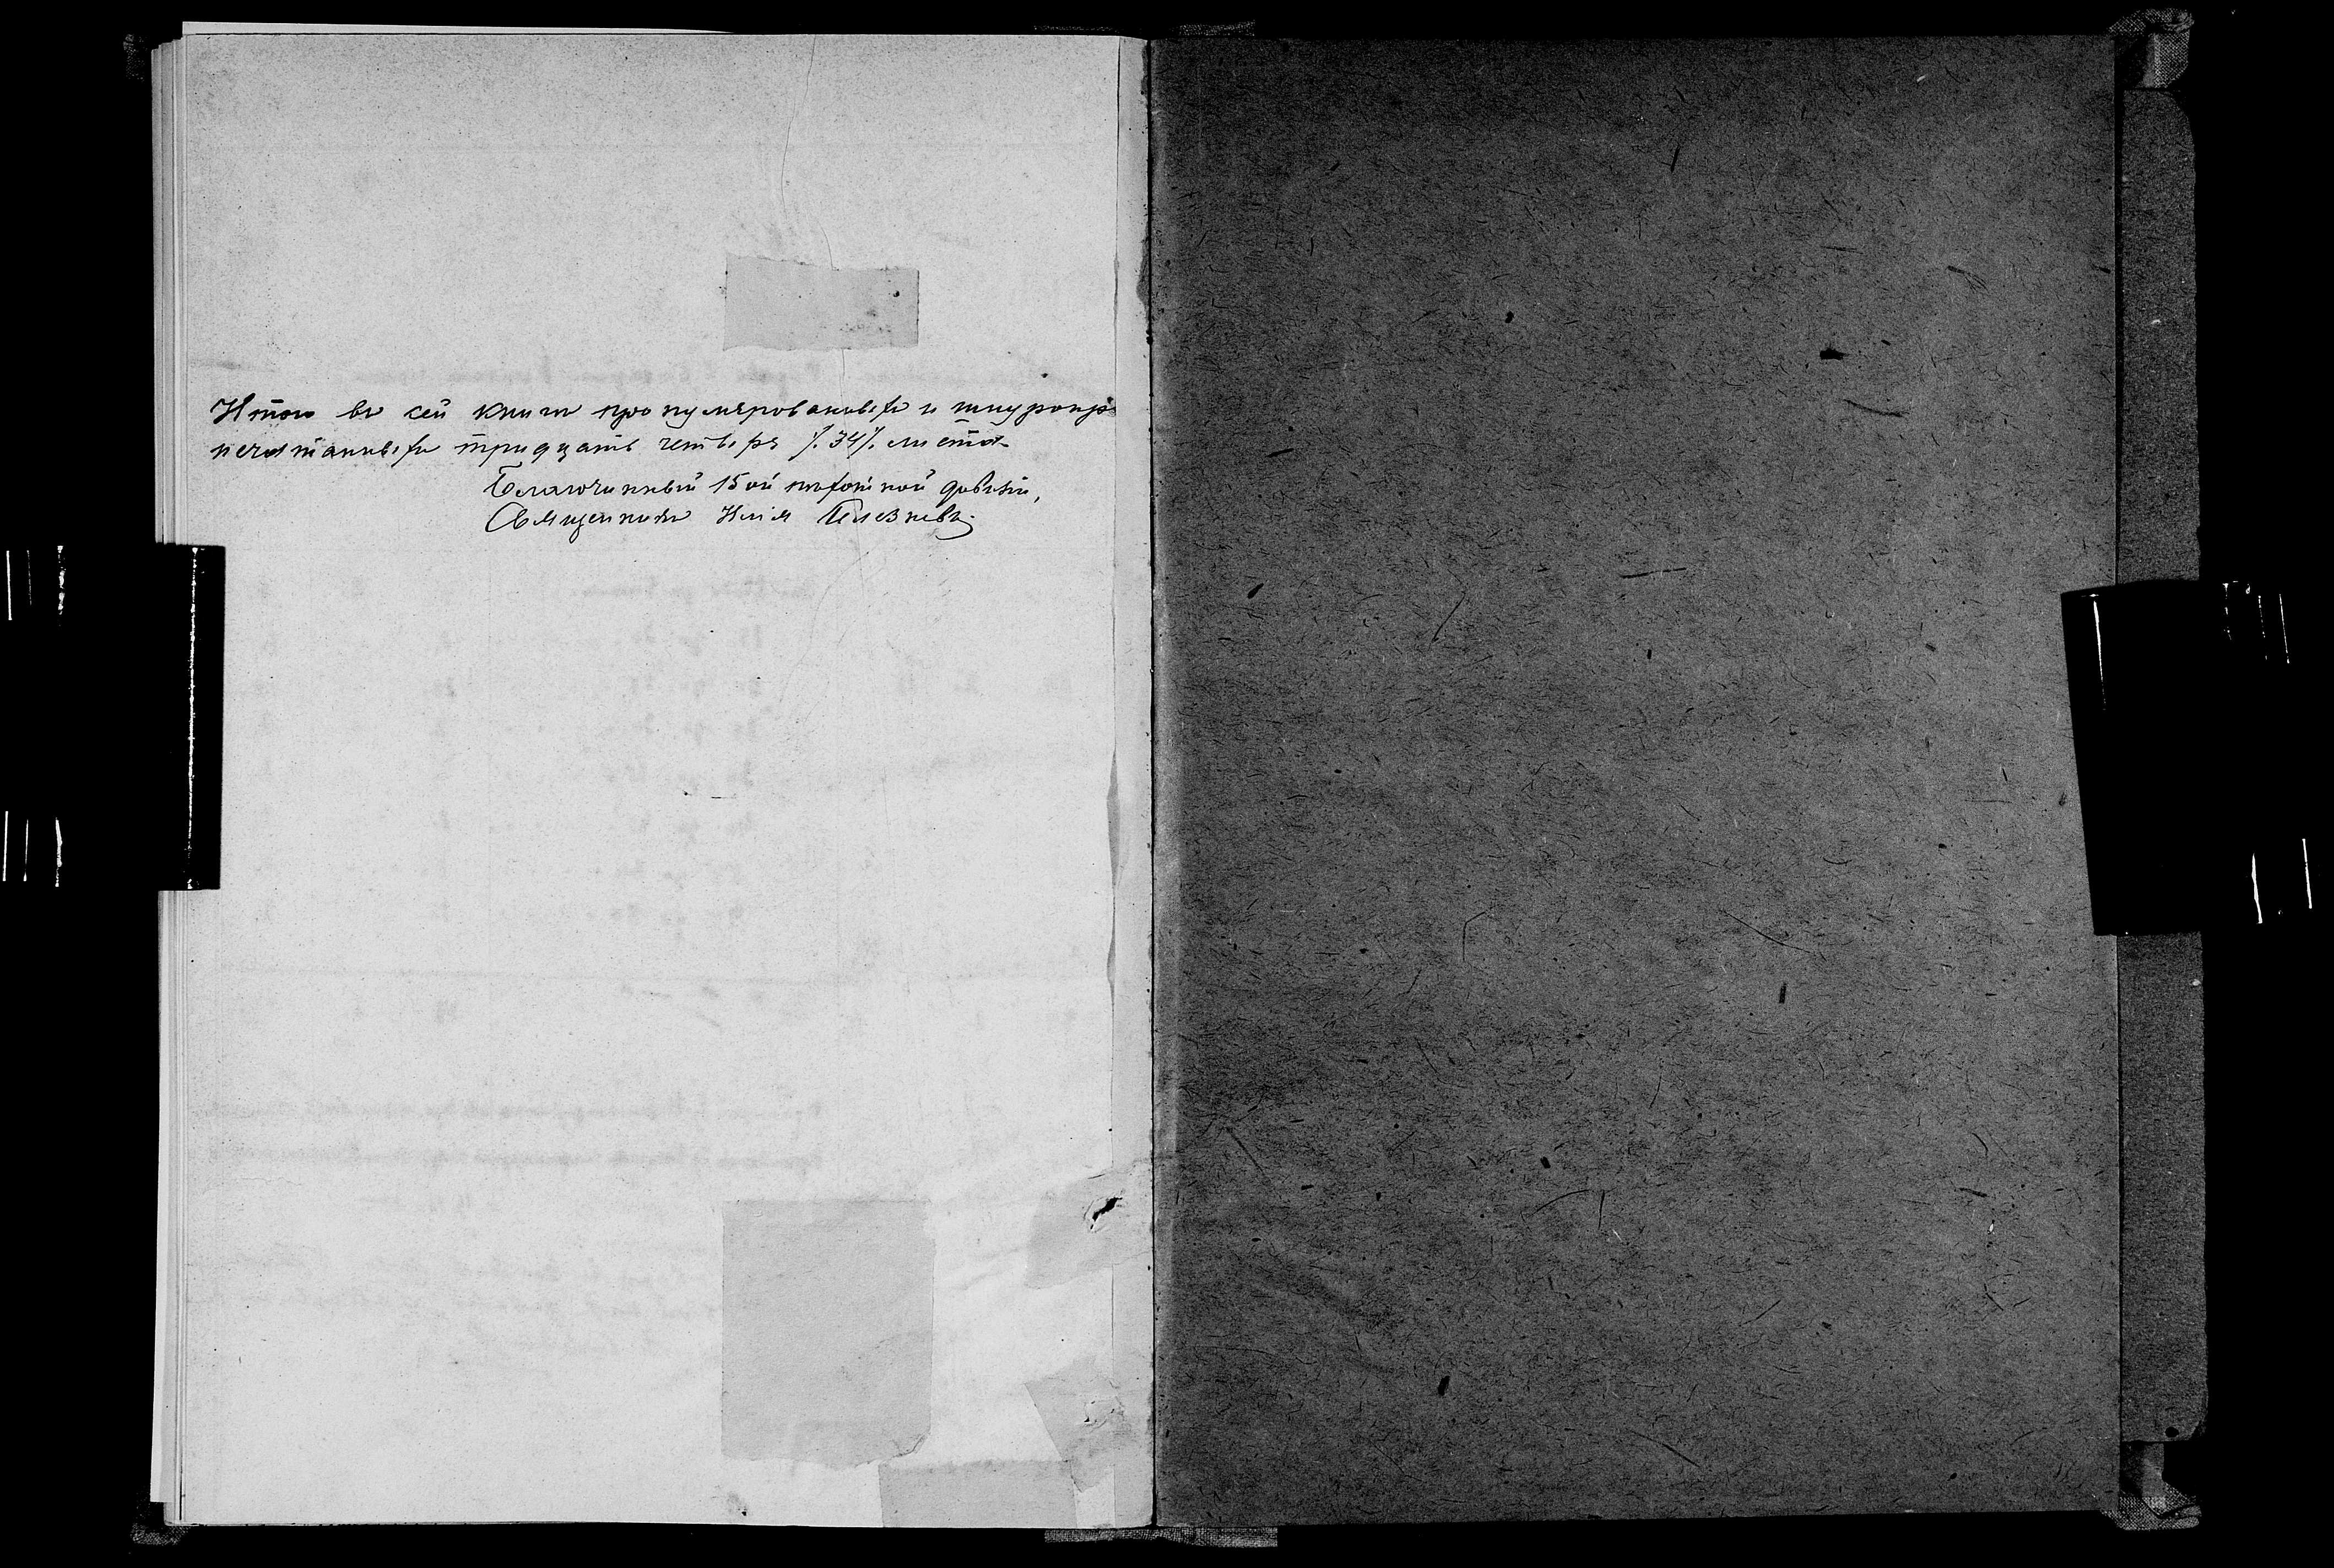 Итого въ сей книгѣ пронумерованныхъ и шнуропри
печатанныхъ тридцать четыре /.34/. листа
Благочинный 15ой пѣхотной дивизіи,
Священникъ Илія